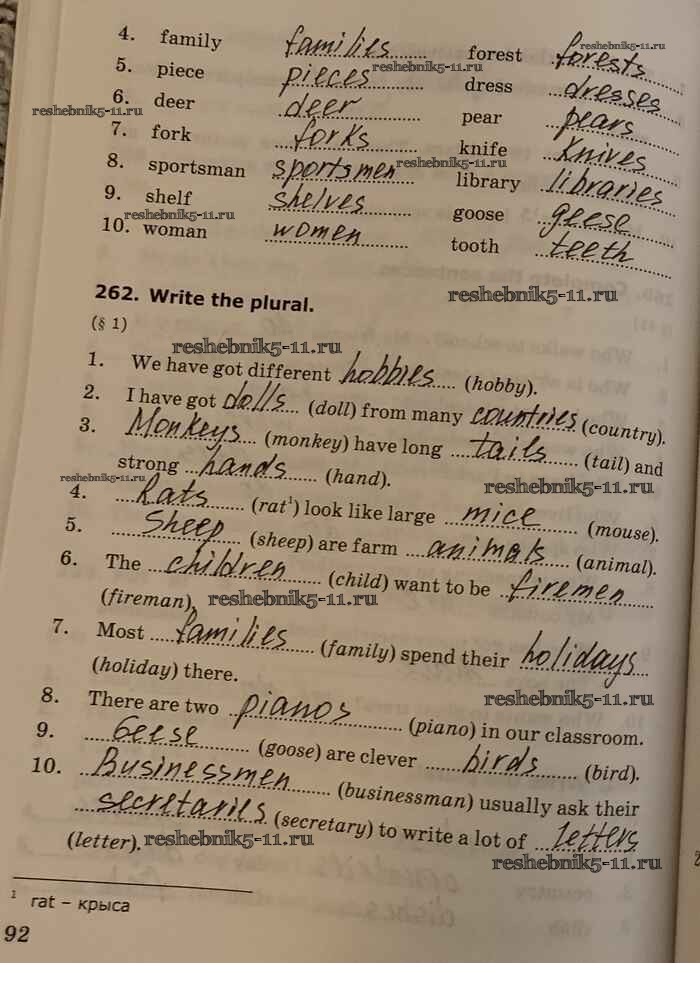 4. family families forest forests
reshebnik5-11.ru
5. piece pieces dress dresses
reshebnik5-11.ru
6. deer deer pear pears
reshebnik5-11.ru
7. fork forks knife knives
8. sportsman sportsmen library libraries
reshebnik5-11.ru
9. shelf shelves goose geese
reshebnik5-11.ru
10. woman women tooth teeth
262. Write the plural.
reshebnik5-11.ru
(§ 1)
reshebnik5-11.ru
1. We have got different hobbies (hobby).
2. I have got dolls (doll) from many countries (country).
3. Monkeys (monkey) have long tails (tail) and
strong hands (hand).
reshebnik5-11.ru
reshebnik5-11.ru
4. Rats (rat¹) look like large mice (mouse).
5. Sheep (sheep) are farm animals (animal).
6. The children (child) want to be firemen
(fireman).
reshebnik5-11.ru
7. Most families (family) spend their holidays
(holiday) there.
reshebnik5-11.ru
8. There are two pianos (piano) in our classroom.
9. Geese (goose) are clever birds (bird).
10. Businessmen (businessman) usually ask their
secretaries (secretary) to write a lot of letters
(letter).
reshebnik5-11.ru
reshebnik5-11.ru
¹ rat – крыса
92